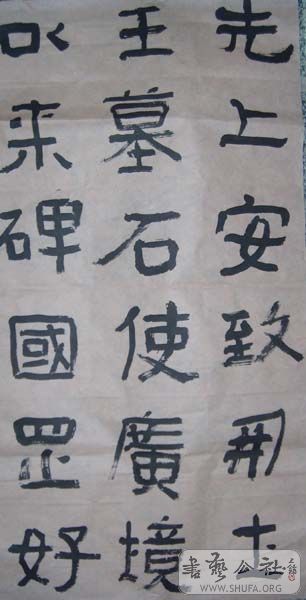 先上安致开土
王墓石使廣境
以来碑國罡好
書藝公社
WWW.SHUFA.ORG